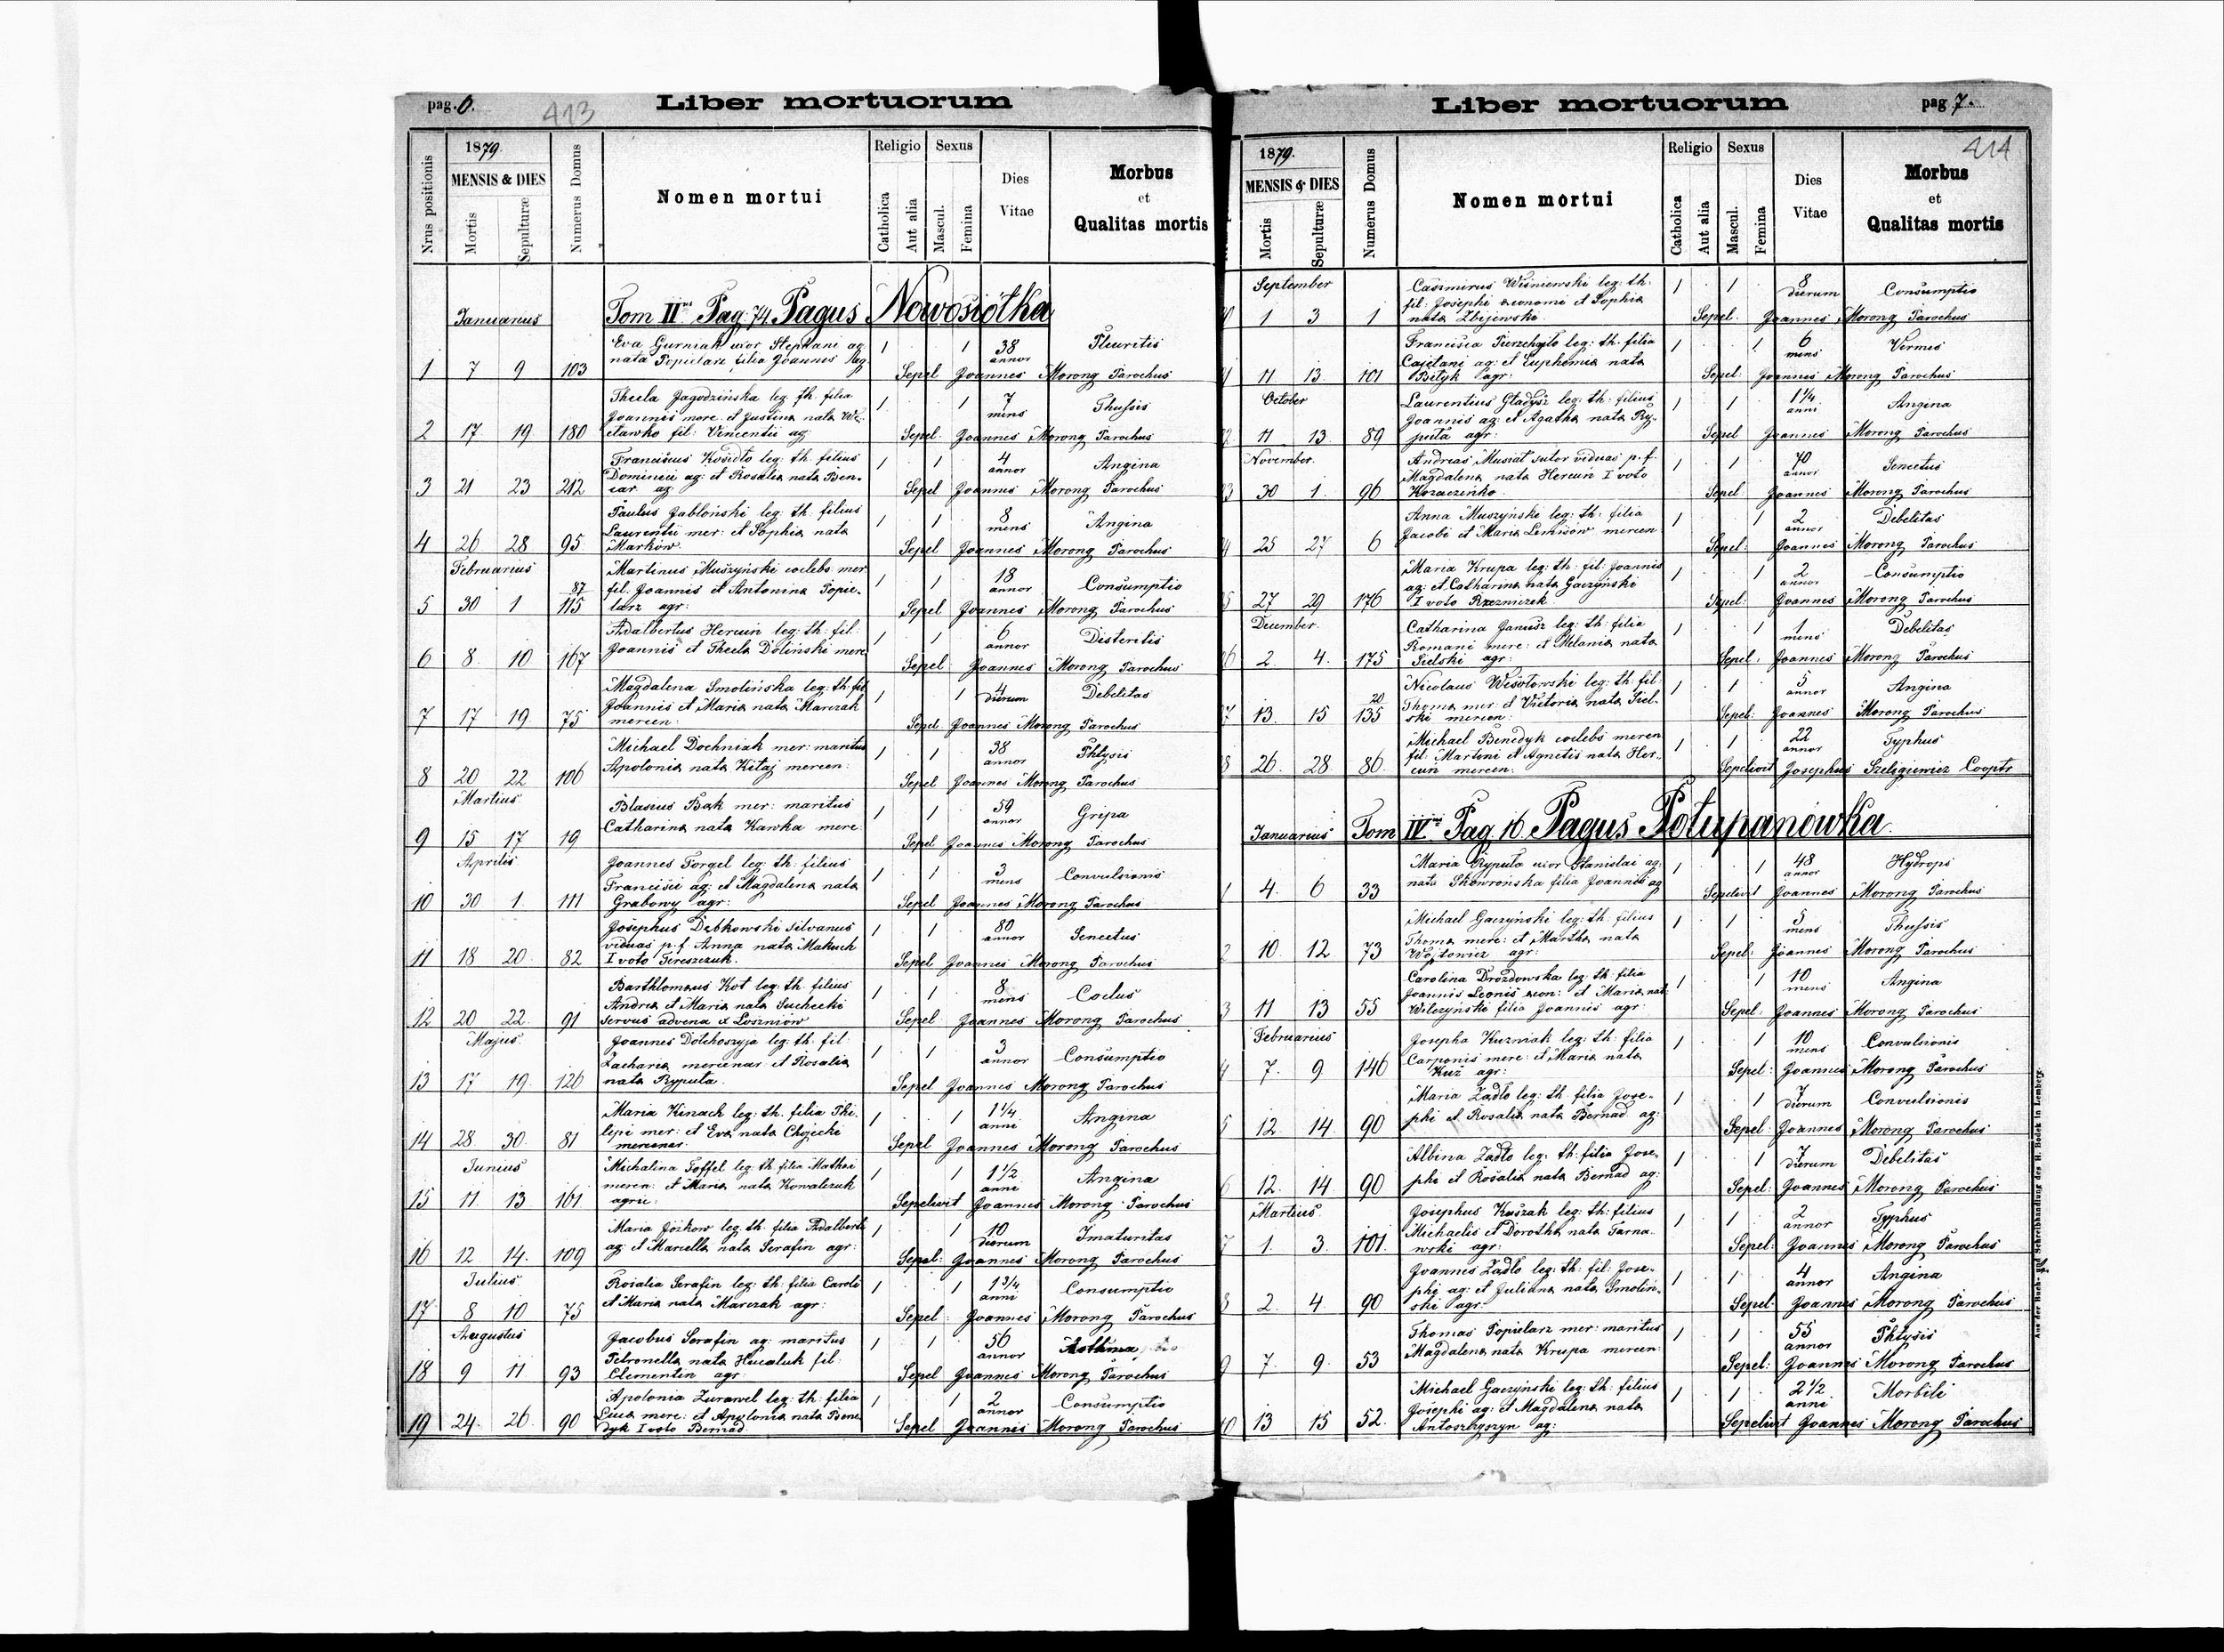 pag. 6.
413
Liber mortuorum
Nrus positionis
1879.
MENSIS & DIES
Mortis
Sepulturæ
Numerus Domus
Nomen mortui
Religio
Catholica
Aut alia
Sexus
Mascul.
Femina
Dies
Vitae
Morbus
et
Qualitas mortis
Januarius
Tom II Pag: 74 Pagus Nowosiołka
Eva Gurniak uxor Stephani ag
nata Popielarz filia Joannis ag
1 7 9 103 1 1 38 annor Pleuritis
Sepel Joannes Morong Parochus
Thecla Jagodzińska leg. th. filia
Joannis merc. et Justina nata
fil: Vincentii ag:
2 17. 19. 180 1 1 7 mens Thussis
Sepel. Joannes Morong Parochus
Franciscus Kosidło leg: th. filius
Dominici ag: et Rosalia nata Ben-
car ag:
3 21 23 212 1 1 4 annor Angina
Sepel Joannes Morong Parochus
Paulus Jabłoński leg: th. filius
Laurentii mer: et Sophia nata
Marków.
4 26 28 95 1 1 8 mens Angina
Sepel Joannes Morong Parochus
Februarius
Martinus Muszyński coelebs mer
fil. Joannis et Antonina Popie-
larz agr:
5 30 1 87 115 1 1 18 annor Consumptio
Sepel Joannes Morong Parochus
Adalbertus Hercuń leg: th: fil:
Joannis et Thecla Doliński merc
6 8. 10 167 1 1 6 annor Disteritis
Sepel: Joannes Morong Parochus
Magdalena Smolińska leg: th: fil
Joannis et Maria nata Marczak
mercen:
7 17 19 75 1 1 4 dierum Debelitas
Sepel Joannes Morong Parochus
Michael Dochniak mer: maritus
Apolonia nata Kitaj mercen:
8 20 22 106 1 1 38 annor Phtysis
Sepel Joannes Morong Parochus
Martius
Blasius Bąk mer: maritus
Catharina nata Kawka merc
9 15 17 19 1 1 59 annor Gripa
Sepel Joannes Morong Parochus
Aprilis
Joannes Forgel leg: th: filius
Francisci ag: et Magdalena nata
Grabowy agr:
10 30 1. 111 1 1 3 mens Convulsionis
Sepel Joannes Morong Parochus
Josephus Dębkowski silvanus
viduus p.f. Anna nata Makuch
I voto Tereszczuk.
11 18 20. 82 1 1 80 annor Senectus
Sepel Joannes Morong Parochus
Barthlomeus Kot leg: th. filius
Andrea et Maria nata Suchecki
servus advena ex Łoszniów
12 20 22. 91 1 1 8 mens
Sepel: Joannes Morong Parochus
Majus
Joannes Dołchoszyja leg: th: fil:
Zacharia mercenar et Rosalia
nata Rypuła.
13 17 19. 126 1 1 3 annor Consumptio
Sepel Joannes Morong Parochus
Maria Kinach leg: th. filia Phi-
lipi mer: et Eva nata Chojecki
mercenar.
14 28. 30. 81 1 1 1 1/4 anni Angina
Sepel Joannes Morong Parochus
Junius
Michalina Toffel leg: th filia Mathei
mercn: et Maria nata Kowalczuk
agric:
15 11. 13 161 1 1 1 1/2 anni Angina
Sepelivit Joannes Morong Parochus
Maria Józkow leg: th. filia Adalberti
ag: et Marcella nata Serafin agr:
16 12 14. 109 1 1 10 dierum Imaturitas
Sepel: Joannes Morong Parochus
Julius
Rosalia Serafin leg: th: filia Caroli
et Maria nata Marczak agr:
17 8 10 75 1 1 1 3/4 anni Consumptio
Sepel: Joannes Morong Parochus
Augustus
Jacobus Serafin ag: maritus
Petronella nata Hucaluk fil:
Clementin agr:
18 9 11 93 1 1 56 annor Asthma
Sepel Joannes Morong Parochus
Apolonia Zurawel leg: th: filia
merc: et Apolonia nata Bene-
dyk I voto Bernad
19 24. 26. 90 1 1 2 annor Consumptio
Sepel Joannes Morong Parochus
Liber mortuorum
pag. 7.
414
1879.
MENSIS & DIES
Mortis
Sepulturæ
Numerus Domus
Nomen mortui
Religio
Catholica
Aut alia
Sexus
Mascul.
Femina
Dies
Vitae
Morbus
et
Qualitas mortis
September
Casimirus Wiśniewski leg: th:
fil: Josephi economi et Sophia
nata Zbijewski.
1 3 1 1 1 8 dierum Consumptio
Sepel. Joannes Morong Parochus
Francisca Pierzchajło leg: th. filia
Cajetani ag: et Euphemia nata
Bityk agr:
11 13. 101 1 1 6 mens Vermes
Sepel: Joannes Morong Parochus
October
Laurentius Gładysz leg: th: filius
Joannis ag: et Agatha nata Ry-
puła agr:
11 13. 89 1 1 1 1/4 anni Angina
Sepel Joannes Morong Parochus
November
Andreas Musiał sutor viduus p.f.
Magdalena nata Hercuń I voto
Kozaczenko
30 1. 96 1 1 70 annor Senectus
Sepel Joannes Morong Parochus
Anna Muszyński leg: th: filia
Jacobi et Maria Lemisiów mercen
25 27 6 1 1 2 annor Debelitas
Sepel: Joannes Morong Parochus
Maria Krupa leg: th: fil: Joannis
ag: et Catharina nata Gaczyński
I voto Rzezniczek
27 29 176 1 1 2 annor Consumptio
Sepel: Joannes Morong Parochus
December
Catharina Janusz leg: th: filia
Romani merc: et Melania nata
Sielski agr:
2. 4. 175 1 1 1 mens Debelitas
Sepel: Joannes Morong Parochus
Nicolaus Wesołowski leg: th: fil:
Thoma mer: et Victoria nata Siel-
ski mercen:
13. 15 20 135 1 1 5 annor Angina
Sepel: Joannes Morong Parochus
Michael Benedyk coelebs mercen
fil: Martini et Agnetis nata Her-
cuń mercen:
26. 28. 86. 1 1 22 annor Typhus
Sepelivit Josephus Szeligiewicz Cooptr
Januarius Tom IV Pag. 16. Pagus Połupanówka.
Maria Rypuła uxor Stanislai ag:
nata Skowrońska filia Joannis ag
1 4. 6 33 1 1 48 annor Hydrops
Sepelivit Joannes Morong Parochus
Michael Gaczyński leg: th. filius
Thoma merc: et Martha nata
Wójtowicz agr:
2 10. 12. 73 1 1 5 mens Thussis
Sepel: Joannes Morong Parochus
Carolina Drozdowska leg: th: filia
Joannis Leonis econ: et Maria nat:
Wilczyński filia Joannis agr:
3 11 13 55 1 1 10 mens Angina
Sepel: Joannes Morong Parochus
Februarius
Josepha Kuzniak leg: th: filia
Carponis merc: et Maria nata
Kuź agr:
4 7. 9 146 1 1 10 mens Convulsionis
Sepel: Joannes Morong Parochus
Maria Zadło leg: th: filia Jose-
phi et Rosalia nata Bernad ag:
5 12. 14. 90 1 1 7 dierum Convulsionis
Sepel: Joannes Morong Parochus
Albina Zadło leg: th: filia Jose-
phi et Rosalia nata Bernad ag:
6 12. 14. 90 1 1 7 dierum Debelitas
Sepel: Joannes Morong Parochus
Martius
Josephus Kuszak leg: th: filius
Michaelis et Dorothea nata Tarna-
wski agr:
7 1. 3. 101. 1 1 2 annor Typhus
Sepel: Joannes Morong Parochus
Joannes Zadło leg: th: fil: Jose-
phi ag: et Juliana nata Smoliń-
ski agr:
8 2. 4 90 1 1 4 annor Angina
Sepel: Joannes Morong Parochus
Thomas Popielarz mer: maritus
Magdalena nata Krupa mercen:
9 7. 9. 53 1 1 55 annor Phtysis
Sepel: Joannes Morong Parochus
Michael Gaczyński leg: th: filius
Josephi ag: et Magdalena nata
Antoszkyszyn ag:
10 13 15 52. 1 1 2 1/2 anni Morbili
Sepelivit Joannes Morong Parochus
Aus der Buch- und Schreibhandlung des H. Bodek in Lemberg.